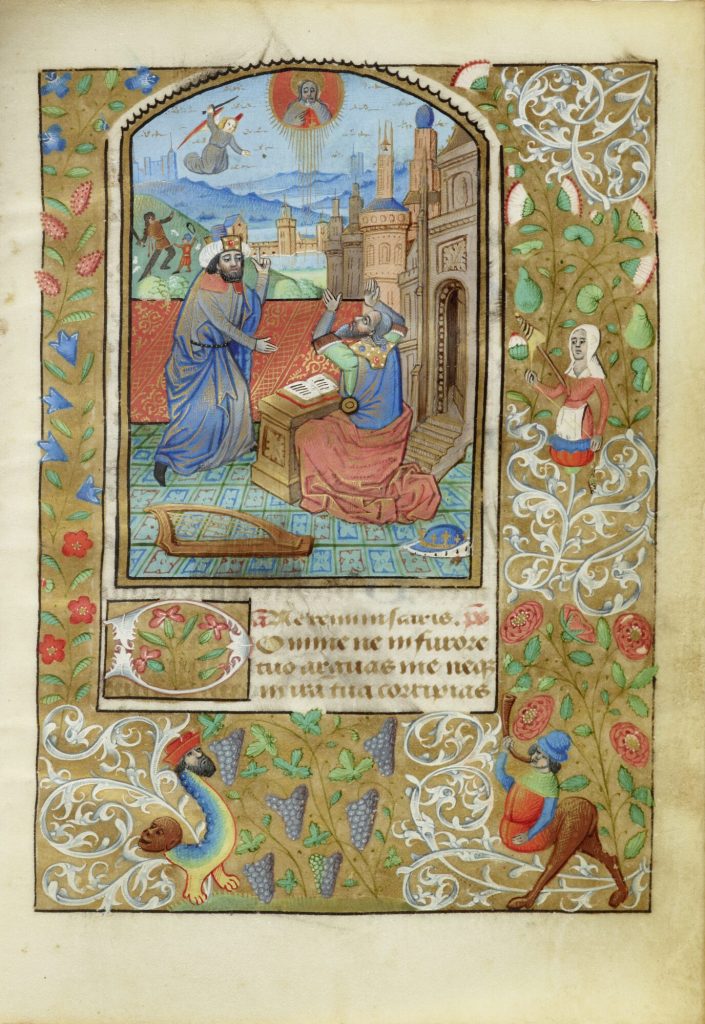 Ne reminiscaris. ps
Domine ne in furore
tuo arguas me neq̃
in ira tua corripias